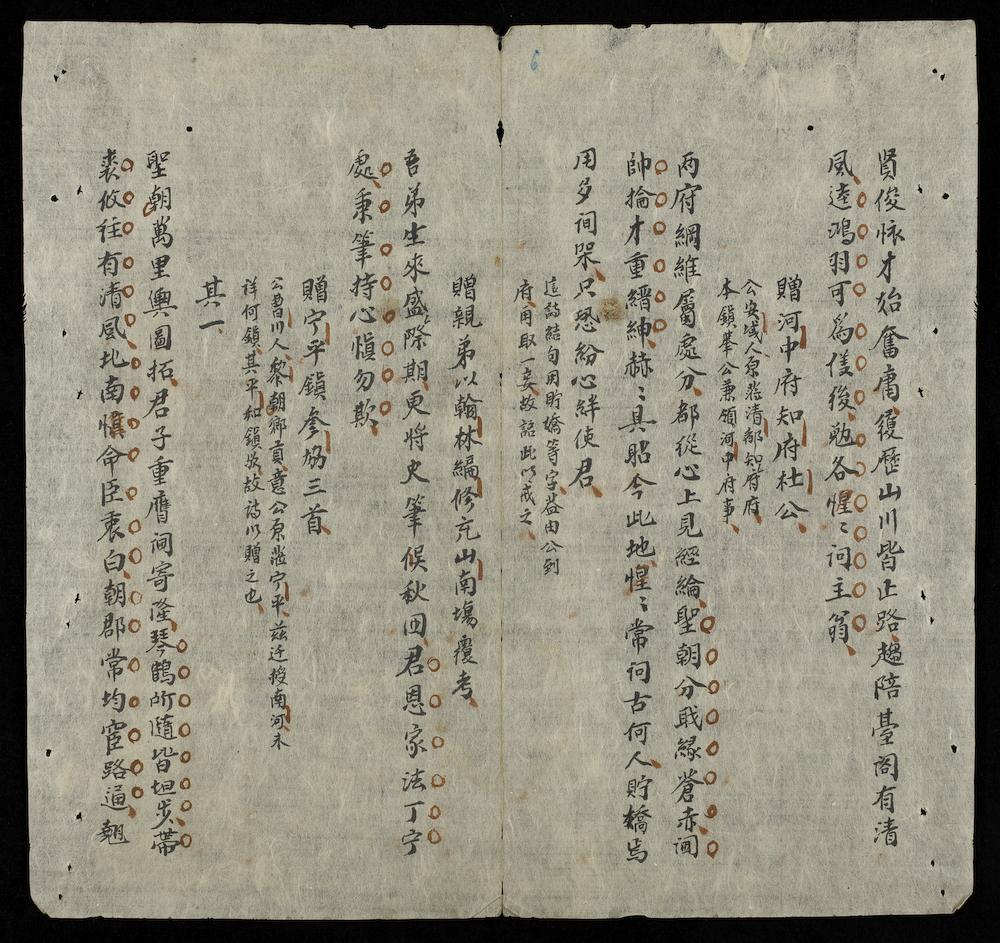 賢俊懷才殆奮庸履歷山川皆正路趨陪臺閣有清
風逵鴻羽可為儀後勉各惺〻问主翁
贈河中府知府杜公
公安域人原蒞清都知府府
本鎮舉公兼領河中府事
两府綱維屬處分都從心上見經綸聖朝分戝緣蒼赤间
帥掄才重縉紳赫〻具贍今此地惺〻常问古何人貯嬌焉
用多间架只恐紛心絆使君
這詩結句用貯嬌等字益由公到
府用取一妾故詺此以戒之
贈親弟以翰林編修充山南塲覆考
吾弟生來盛際期更將史筆候秋囬君恩家法丁宁
處秉筆持心慎勿欺
贈宁平鎮參協三首
公曹川人黎朝鄉貢意公原蒞宁平茲迁授南河未
詳何鎮其平和鎮放故詩以贈之也
其一
聖朝萬里輿圖拓君子重膺阃寄隆琴鶴所隨皆坦步帶
裘攸往有清風北南慎命臣衷白朝郡常均宦路通翹